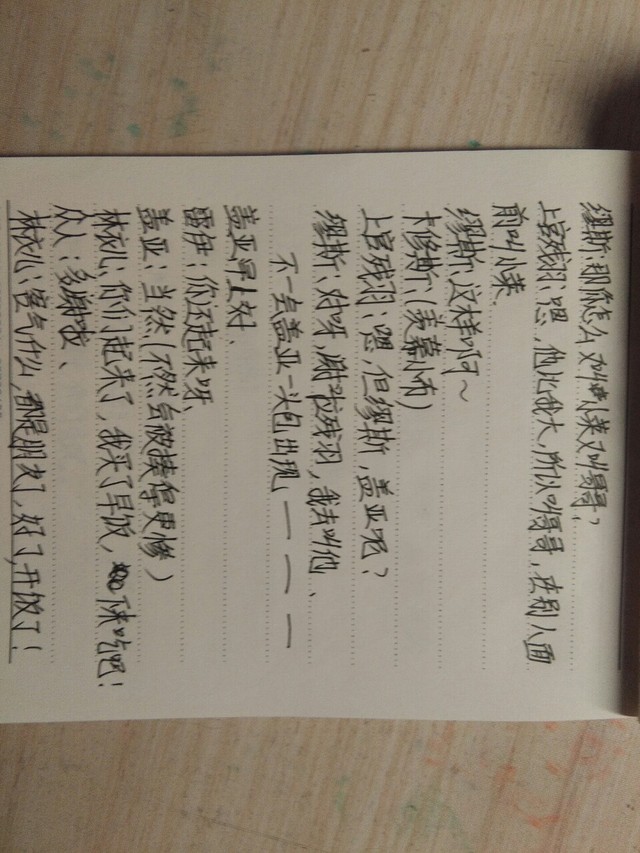 缪斯：那你怎么又叫小菜又叫哥哥？
上官残羽：嗯，他比我大，所以叫哥哥，在别人面
前叫小菜.
缪斯：这样啊～
卡修斯：(羡慕小有)
上官残羽：嗯，但缪斯，盖亚呢？
缪斯：对呀，谢啦残羽，我去叫他、
不一点盖亚一头包出现 — — —
盖亚早上好、
雷伊：你还起来呀、
盖亚：当然(不然会被揍得更惨)
林：你们起来了，我买了早饭，下来吃吧！
众人：多谢啦、
林：客气什么，都是朋友了，好了，开饭了！